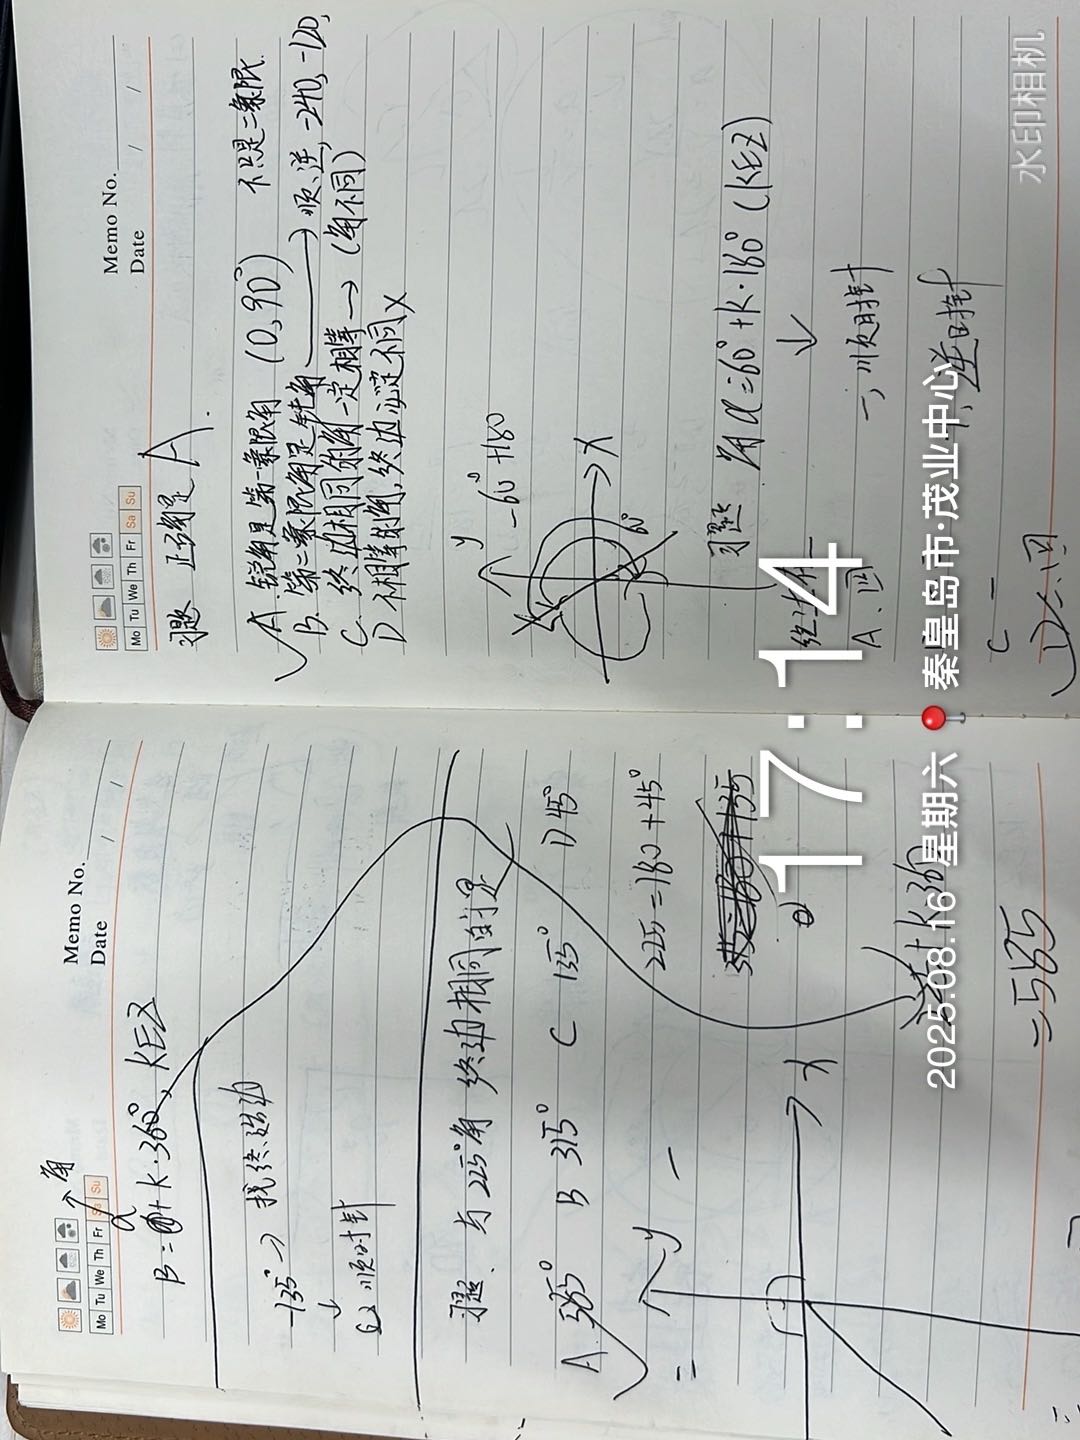 Memo No.
Date / /
Mo Tu We Th Fr Sa Su
α → 角
β = α + k·360°, k∈Z
-135° → 找终边
↓
顺时针
习题、与225°角 终边相同的是
A 585° B 315° C 135° D 45°
225=180+45°
y
x
225+k·360
=585
Memo No.
Date / /
Mo Tu We Th Fr Sa Su
习题 正确是 A.
A 锐角是第一象限角 (0,90°) 不只是二象限.
B. 第二象限角是钝角 → 顺、逆, -240, -120,
C. 终边相同的角一定相等 → (角不同)
D 不相等的角,终边必定不同 X
y -60°+180
x
60°
习题 角α=60°+k·180° (k∈Z)
终边在
A、四 一, 顺时针
逆时针
C 一
D
17:14
2025.08.16 星期六 秦皇岛市·茂业中心
水印相机